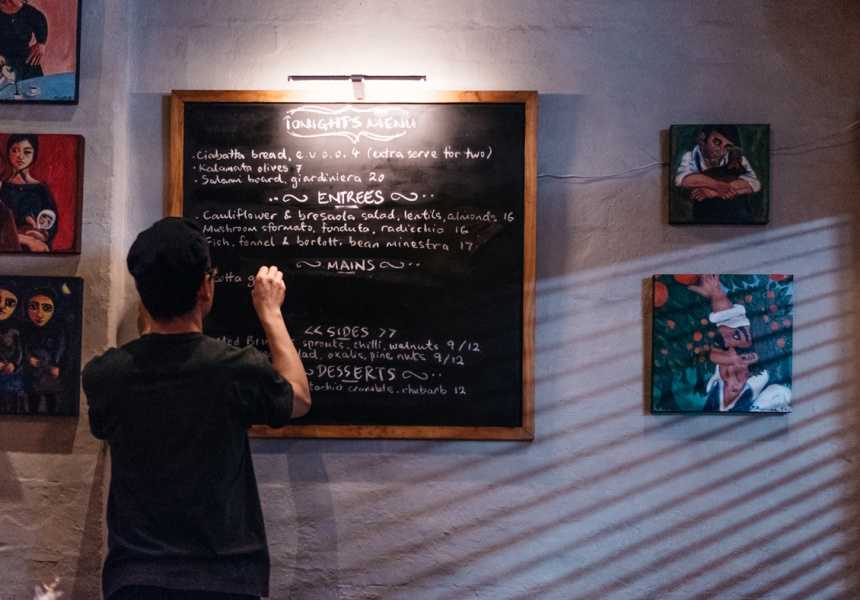 TONIGHT'S MENU
· Ciabatta bread, e.v.o.o. 4 (extra serve for two)
· Kalamata olives 7
· Salami board, giardiniera 20
ENTREES
· Cauliflower & bresaola salad, lentils, almonds 16
Mushroom sformato, fonduta, radicchio 16
Fish, fennel & borlotti bean minestra 17
MAINS
cotta g
<< SIDES >>
sprouts, chilli, walnuts 9/12
oxalis, pine nuts 9/12
DESSERTS
crumble, rhubarb 12